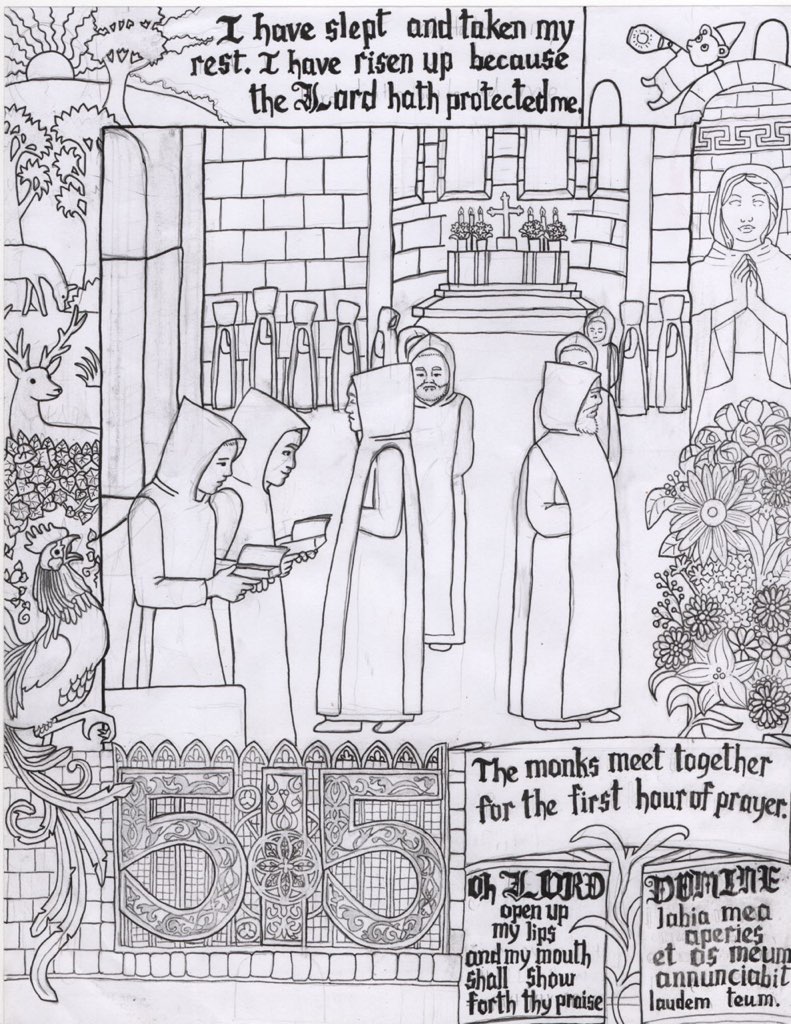 I have slept and taken my
rest. I have risen up because
the Lord hath protected me.
5 15
The monks meet together
for the first hour of prayer.
Oh LORD
open up
my lips
and my mouth
shall show
forth thy praise
DOMINE
labia mea
aperies
et os meum
annunciabit
laudem teum.